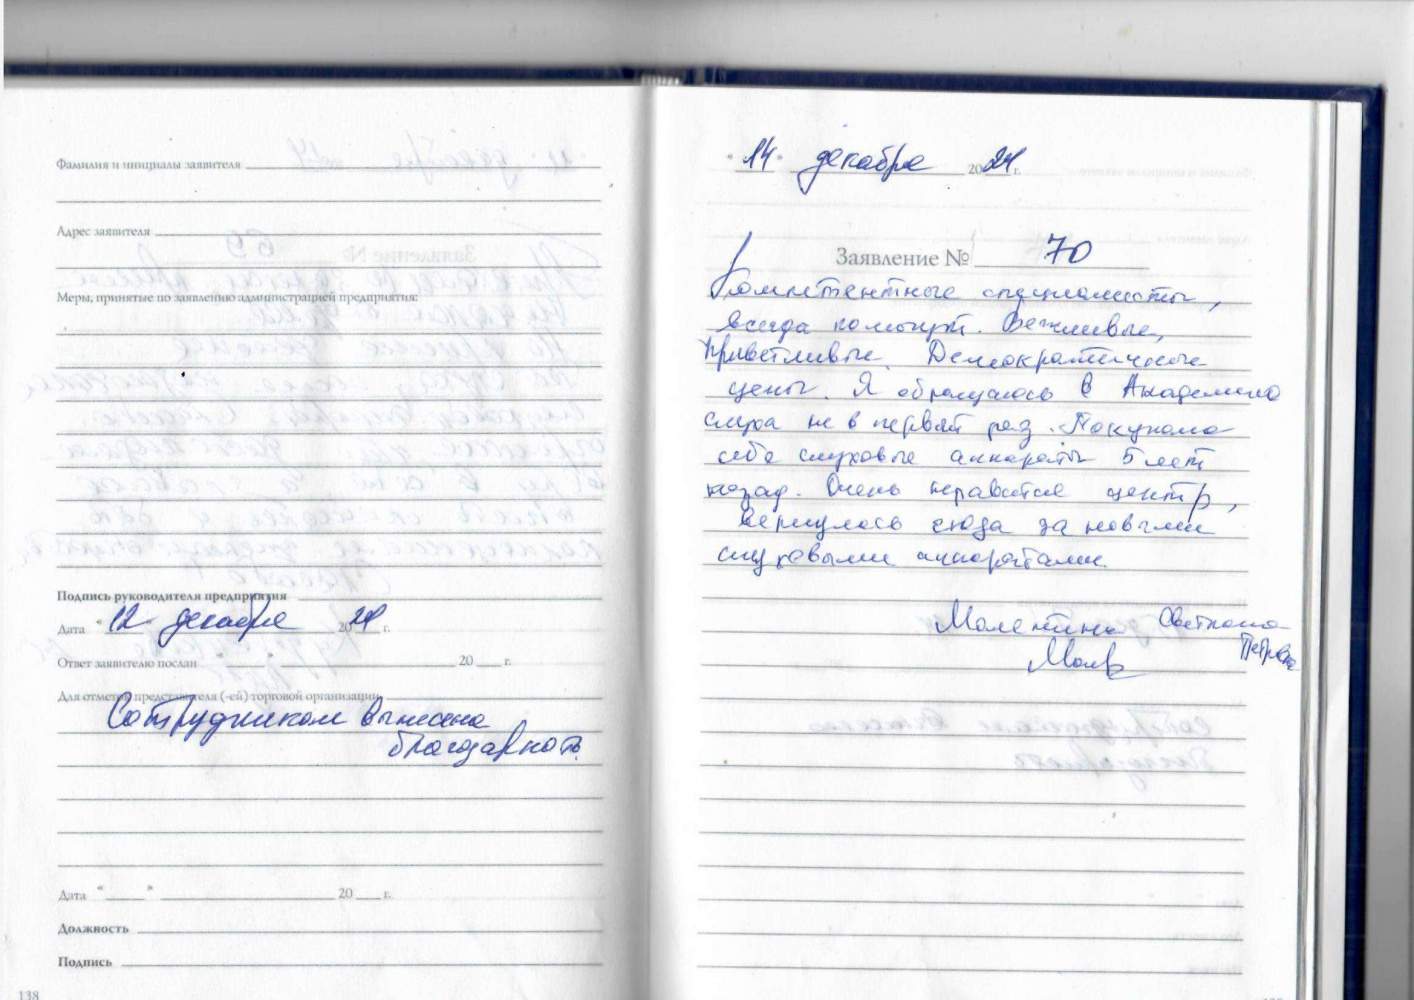 Фамилия и инициалы заявителя
Адрес заявителя
Меры, принятые по заявлению администрацией предприятия:
Подпись руководителя предприятия
Дата "12" декабря 2024 г.
Ответ заявителю послан " " 20 г.
Для отметок представителя (-ей) торговой организации
Сотрудникам вынесена
благодарность.
Дата " " 20 г.
Должность
Подпись
138
"14" декабря 2024 г.
Заявление № 70
Компетентные специалисты,
всегда помогут. Вежливые,
приветливые. Демократичные
цены. Я обращаюсь в Академию
слуха не в первый раз. Покупала
себе слуховые аппараты 5 лет
назад. Очень нравится центр,
вернулась сюда за новыми
слуховыми аппаратами.
Светлана
Петровна